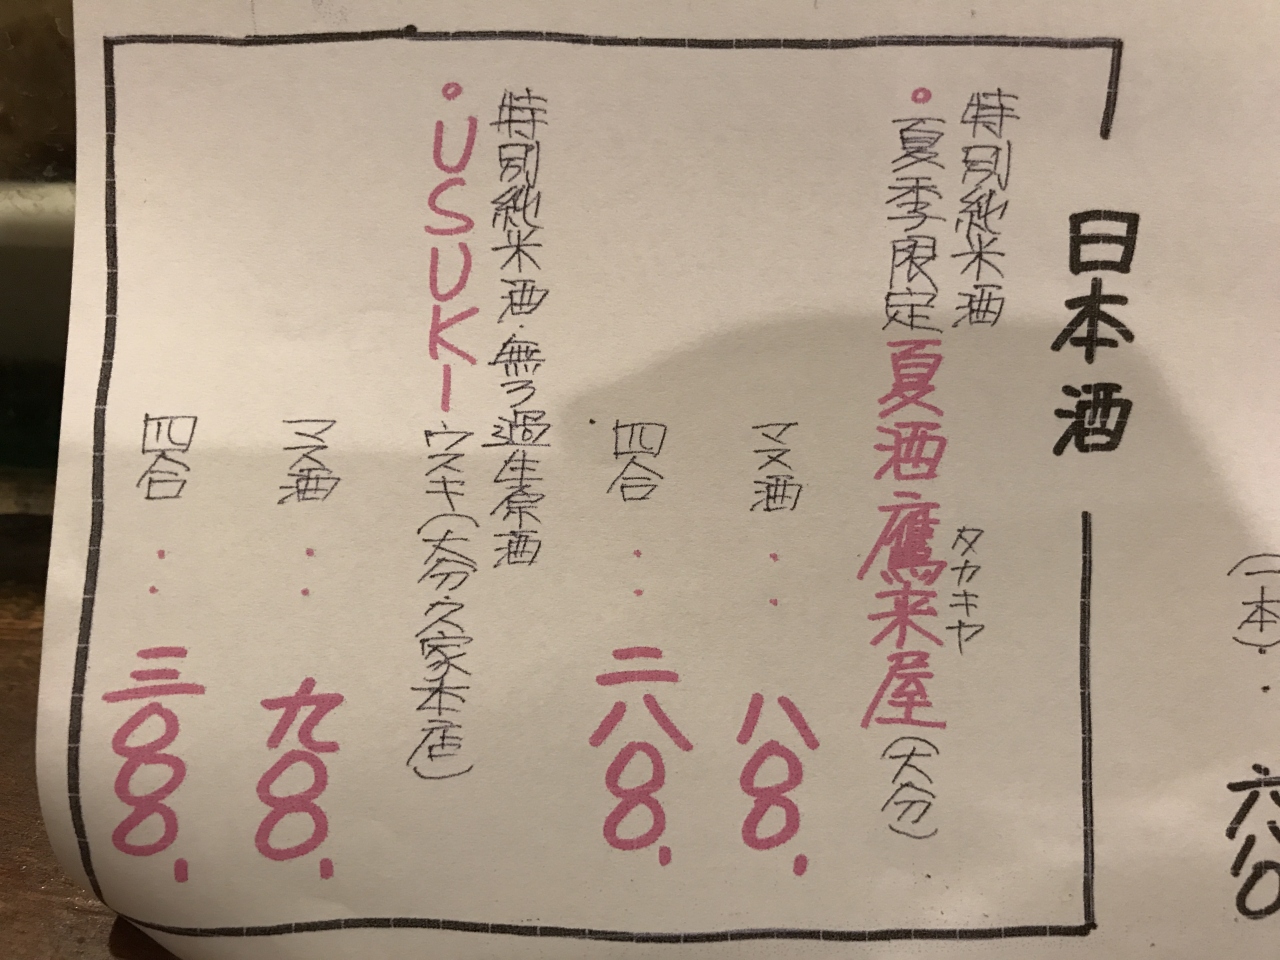 (一本)・・六八〇
日本酒
特別純米酒
・夏季限定夏酒鷹来屋(大分)
タカキヤ
マス酒・・八〇〇.
四合・・二八〇〇.
特別純米酒・無ろ過生原酒
・USUKI ウスキ(大分久家本店)
マス酒・・九〇〇.
四合・・三〇〇〇.